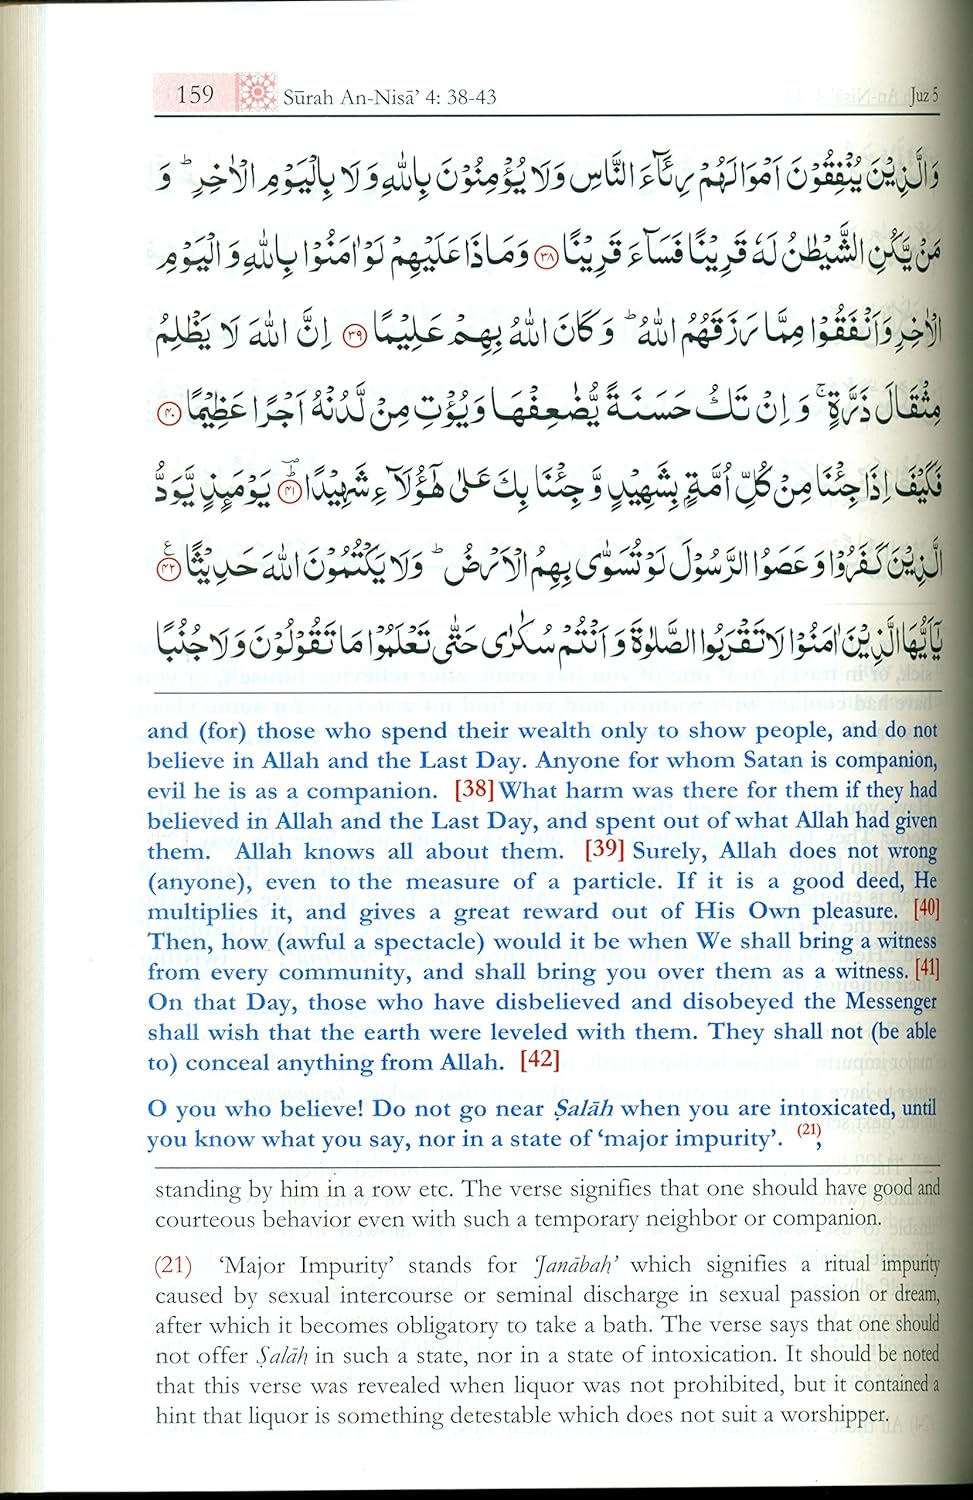 159 Sūrah An-Nisā’ 4: 38-43 Juz 5
وَالَّذِيْنَ يُنْفِقُوْنَ اَمْوَالَهُمْ رِئَآءَ النَّاسِ وَلَا يُؤْمِنُوْنَ بِاللّٰهِ وَلَا بِالْيَوْمِ الْاٰخِرِ ؕ وَ
مَنْ يَّكُنِ الشَّيْطٰنُ لَهٗ قَرِيْنًا فَسَآءَ قَرِيْنًا ۝٣٨ وَمَاذَا عَلَيْهِمْ لَوْ اٰمَنُوْا بِاللّٰهِ وَ الْيَوْمِ
الْاٰخِرِ وَاَنْفَقُوْا مِمَّا رَزَقَهُمُ اللّٰهُ ؕ وَكَانَ اللّٰهُ بِهِمْ عَلِيْمًا ۝٣٩ اِنَّ اللّٰهَ لَا يَظْلِمُ
مِثْقَالَ ذَرَّةٍ ۚ وَ اِنْ تَكُ حَسَنَةً يُّضٰعِفْهَا وَيُؤْتِ مِنْ لَّدُنْهُ اَجْرًا عَظِيْمًا ۝٤٠
فَكَيْفَ اِذَا جِئْنَا مِنْ كُلِّ اُمَّةٍۭ بِشَهِيْدٍ وَّ جِئْنَا بِكَ عَلٰى هٰۤؤُلَآءِ شَهِيْدًا ؕ۝٤١ يَوْمَئِذٍ يَّوَدُّ
الَّذِيْنَ كَفَرُوْا وَعَصَوُا الرَّسُوْلَ لَوْ تُسَوّٰى بِهِمُ الْاَرْضُ ؕ وَلَا يَكْتُمُوْنَ اللّٰهَ حَدِيْثًا ۝٤٢ ع
يٰۤاَيُّهَا الَّذِيْنَ اٰمَنُوْا لَا تَقْرَبُوا الصَّلٰوةَ وَ اَنْتُمْ سُكٰرٰى حَتّٰى تَعْلَمُوْا مَا تَقُوْلُوْنَ وَ لَا جُنُبًا
and (for) those who spend their wealth only to show people, and do not
believe in Allah and the Last Day. Anyone for whom Satan is companion,
evil he is as a companion. [38] What harm was there for them if they had
believed in Allah and the Last Day, and spent out of what Allah had given
them. Allah knows all about them. [39] Surely, Allah does not wrong
(anyone), even to the measure of a particle. If it is a good deed, He
multiplies it, and gives a great reward out of His Own pleasure. [40]
Then, how (awful a spectacle) would it be when We shall bring a witness
from every community, and shall bring you over them as a witness. [41]
On that Day, those who have disbelieved and disobeyed the Messenger
shall wish that the earth were leveled with them. They shall not (be able
to) conceal anything from Allah. [42]
O you who believe! Do not go near Ṣalāh when you are intoxicated, until
you know what you say, nor in a state of ‘major impurity’. (21),
standing by him in a row etc. The verse signifies that one should have good and
courteous behavior even with such a temporary neighbor or companion.
(21) ‘Major Impurity’ stands for ‘Janābah’ which signifies a ritual impurity
caused by sexual intercourse or seminal discharge in sexual passion or dream,
after which it becomes obligatory to take a bath. The verse says that one should
not offer Ṣalāh in such a state, nor in a state of intoxication. It should be noted
that this verse was revealed when liquor was not prohibited, but it contained a
hint that liquor is something detestable which does not suit a worshipper.